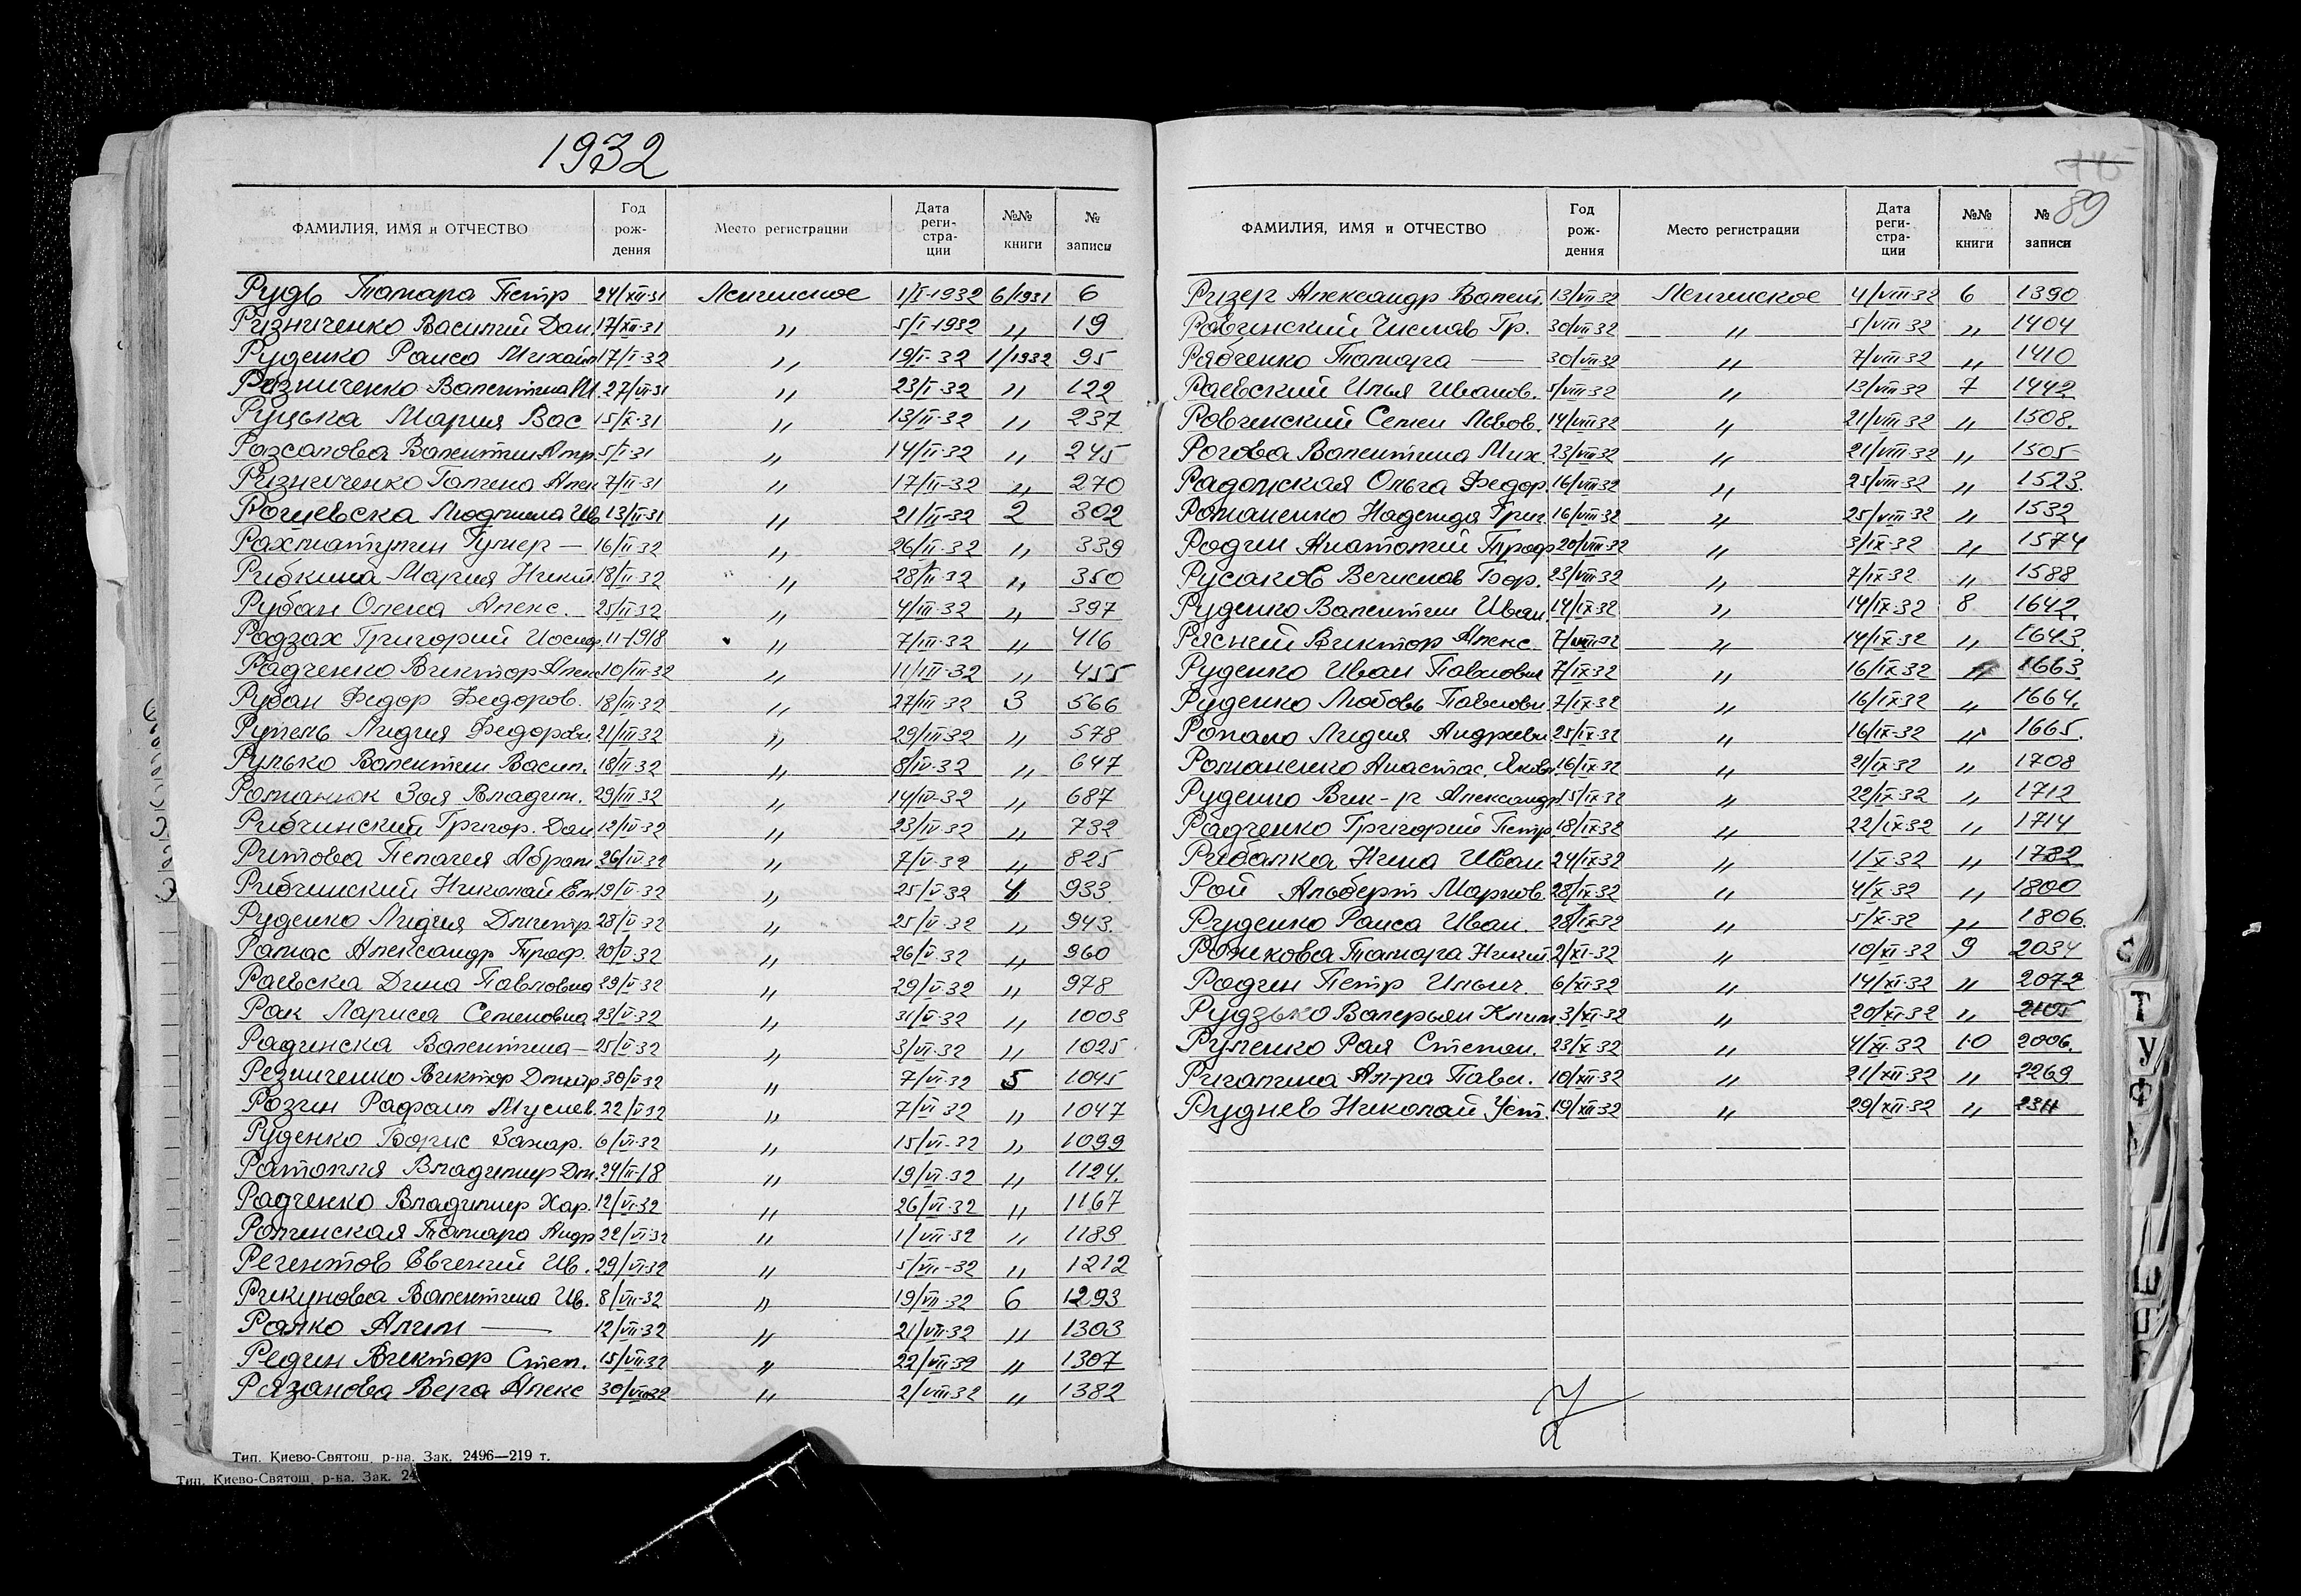 1932
ФАМИЛИЯ, ИМЯ и ОТЧЕСТВО Год рождения Место регистрации Дата регистрации №№ книги № записи
Рудь Тамара Петр 24/XII-31 Ленинское 1/I-1932 6/1931 6
Ризниченко Василий Дан. 17/XII-31 " 5/I-1932 " 19
Руденко Раиса Михайл 17/I-32 " 19/I-32 1/1932 95
Розниченко Валентина И. 27/VI-31 " 23/I-32 " 122
Руцька Мария Вас 15/X-31 " 13/II-32 " 237
Валентин 5/I-31 " 14/II-32 " 245
Ризниченко Галена Алек 7/II-31 " 17/II-32 " 270
Людмила Ив 13/II-31 " 21/II-32 2 302
Рахматулин Гумер — 16/II-32 " 26/II-32 " 339
Рибкина Мария Никит 18/II-32 " 28/II-32 " 350
Рубан Олена Алекс. 25/II-32 " 4/III-32 " 397
Радзах Григорий Иосиф. 11-1918 " 7/III-32 " 416
Радченко Виктор Алекс 10/III-32 " 11/III-32 " 455
Рубан Федор Федоров. 18/III-32 " 27/III-32 3 566
Лидия Федоровн. 21/III32 " 29/III32 " 578
Рулько Валентин Васил. 18/II-32 " 8/IV-32 " 647
Романюк Зоя Владим. 29/III32 " 14/IV-32 " 687
Рибчинский Григор. Дан 12/IV-32 " 23/IV-32 " 732
Ритова Пелагея Абрам 26/IV-32 " 7/V-32 " 825
Рибчинский Николай Ем 19/V-32 " 25/V-32 4 933
Руденко Лидия Дмитр. 28/V-32 " 25/V-32 " 943.
Рамас Александр Троф. 20/V-32 " 26/V-32 " 960
Раевска Дина Павловна 29/V-32 " 29/V-32 " 978
Рак Лариса Семеновна 23/V-32 " 31/V-32 " 1003
Радинска Валентина — 25/V-32 " 3/VI-32 " 1025
Резниченко Виктор Дмитр. 30/V-32 " 7/VI-32 5 1045
Розин Рафаил Мусиев. 22/V32 " 7/VI 32 " 1047
Руденко Борис Захар. 6/VI-32 " 15/VI-32 " 1099
Ратопля Владимир Дм. 24/II-18 " 19/VI-32 " 1124.
Радченко Владимир Хар. 12/VI-32 " 26/VI-32 " 1167
Ролинская Тамара Андр 22/VI-32 " 1/VII-32 " 1189
Регентов Евгений Ив. 29/VI32 " 5/VII-32 " 1212
Рикуновва Валентина Ив. 8/VII-32 " 19/VII-32 6 1293
Ралко Алим — 12/VII-32 " 21/VII-32 " 1303
Редин Виктор Степ. 15/VII-32 " 22/VII-32 " 1307
Рязанова Вера Алекс 30/VII-32 " 2/VIII32 " 1382
Тип. Киево-Святош. р-на. Зак. 2496—219 т.
Тип. Киево-Святош. р-на. Зак. 24
89
ФАМИЛИЯ, ИМЯ и ОТЧЕСТВО Год рождения Место регистрации Дата регистрации №№ книги № записи
Ризер Александр Валент. 13/VII-32 Ленинское 4/VIII-32 6 1390
Равинский Числав Гр. 30/VII-32 " 5/VIII-32 " 1404
Рябченко Тамара — 30/VII-32 " 7/VIII-32 " 1410
Раевский Илья Иванов. 5/VIII-32 " 13/VIII-32 7 1442
Ровинский Семен Львов. 14/VIII32 " 21/VIII-32 " 1508.
Рогова Валентина Мих. 23/VIII32 " 21/VIII-32 " 1505
Радомская Ольга Федор. 16/VIII32 " 25/VIII-32 " 1523.
Романенко Надежда Григ. 16/VIII-32 " 25/VIII-32 " 1532
Родин Анатолий Троф 20/VIII-32 " 3/IX-32 " 1574
Русаков Вечислав Бор. 23/VIII-32 " 7/IX-32 " 1588
Руденко Валентин Иван. 14/IX-32 " 14/IX-32 8 1642.
Рясний Виктор Алекс. 7/VIII-32 " 14/IX-32 " 1643.
Руденко Иван Павлович 7/IX-32 " 16/IX32 " 1663.
Руденко Любовь Павловн 7/IX-32 " 16/IX32 " 1664.
Лидия Андреевн 25/IX-32 " 16/IX-32 " 1665.
Романенко Анастас. Яковл 16/IX-32 " 21/IX-32 " 1708
Руденко Вик-р Александр 15/IX-32 " 22/IX-32 " 1712
Радченко Григорий Петр. 18/IX32 " 22/IX32 " 1714
Рибалка Нина Иван 24/IX32 " 1/X-32 " 1782
Рой Альберт Марков. 28/IX-32 " 4/X-32 " 1800
Руденко Раиса Иван. 28/IX32 " 5/X-32 " 1806.
Рожковва Тамара Никит 2/XI-32 " 10/XI-32 9 2034
Родин Петр Ильич. 6/XI-32 " 14/XI-32 " 2072
Рудзько Валерьян Клим. 3/XI-32 " 20/XI-32 " 2105
Руленко Рая Степан. 23/X-32 " 4/XI-32 10 2006.
Ригалина Ал-ра Павл. 10/XII-32 " 21/XII-32 " 2269
Руднев Николай Уст. 19/XII-32 " 29/XII-32 " 2311
Т
У
Ф
Ш